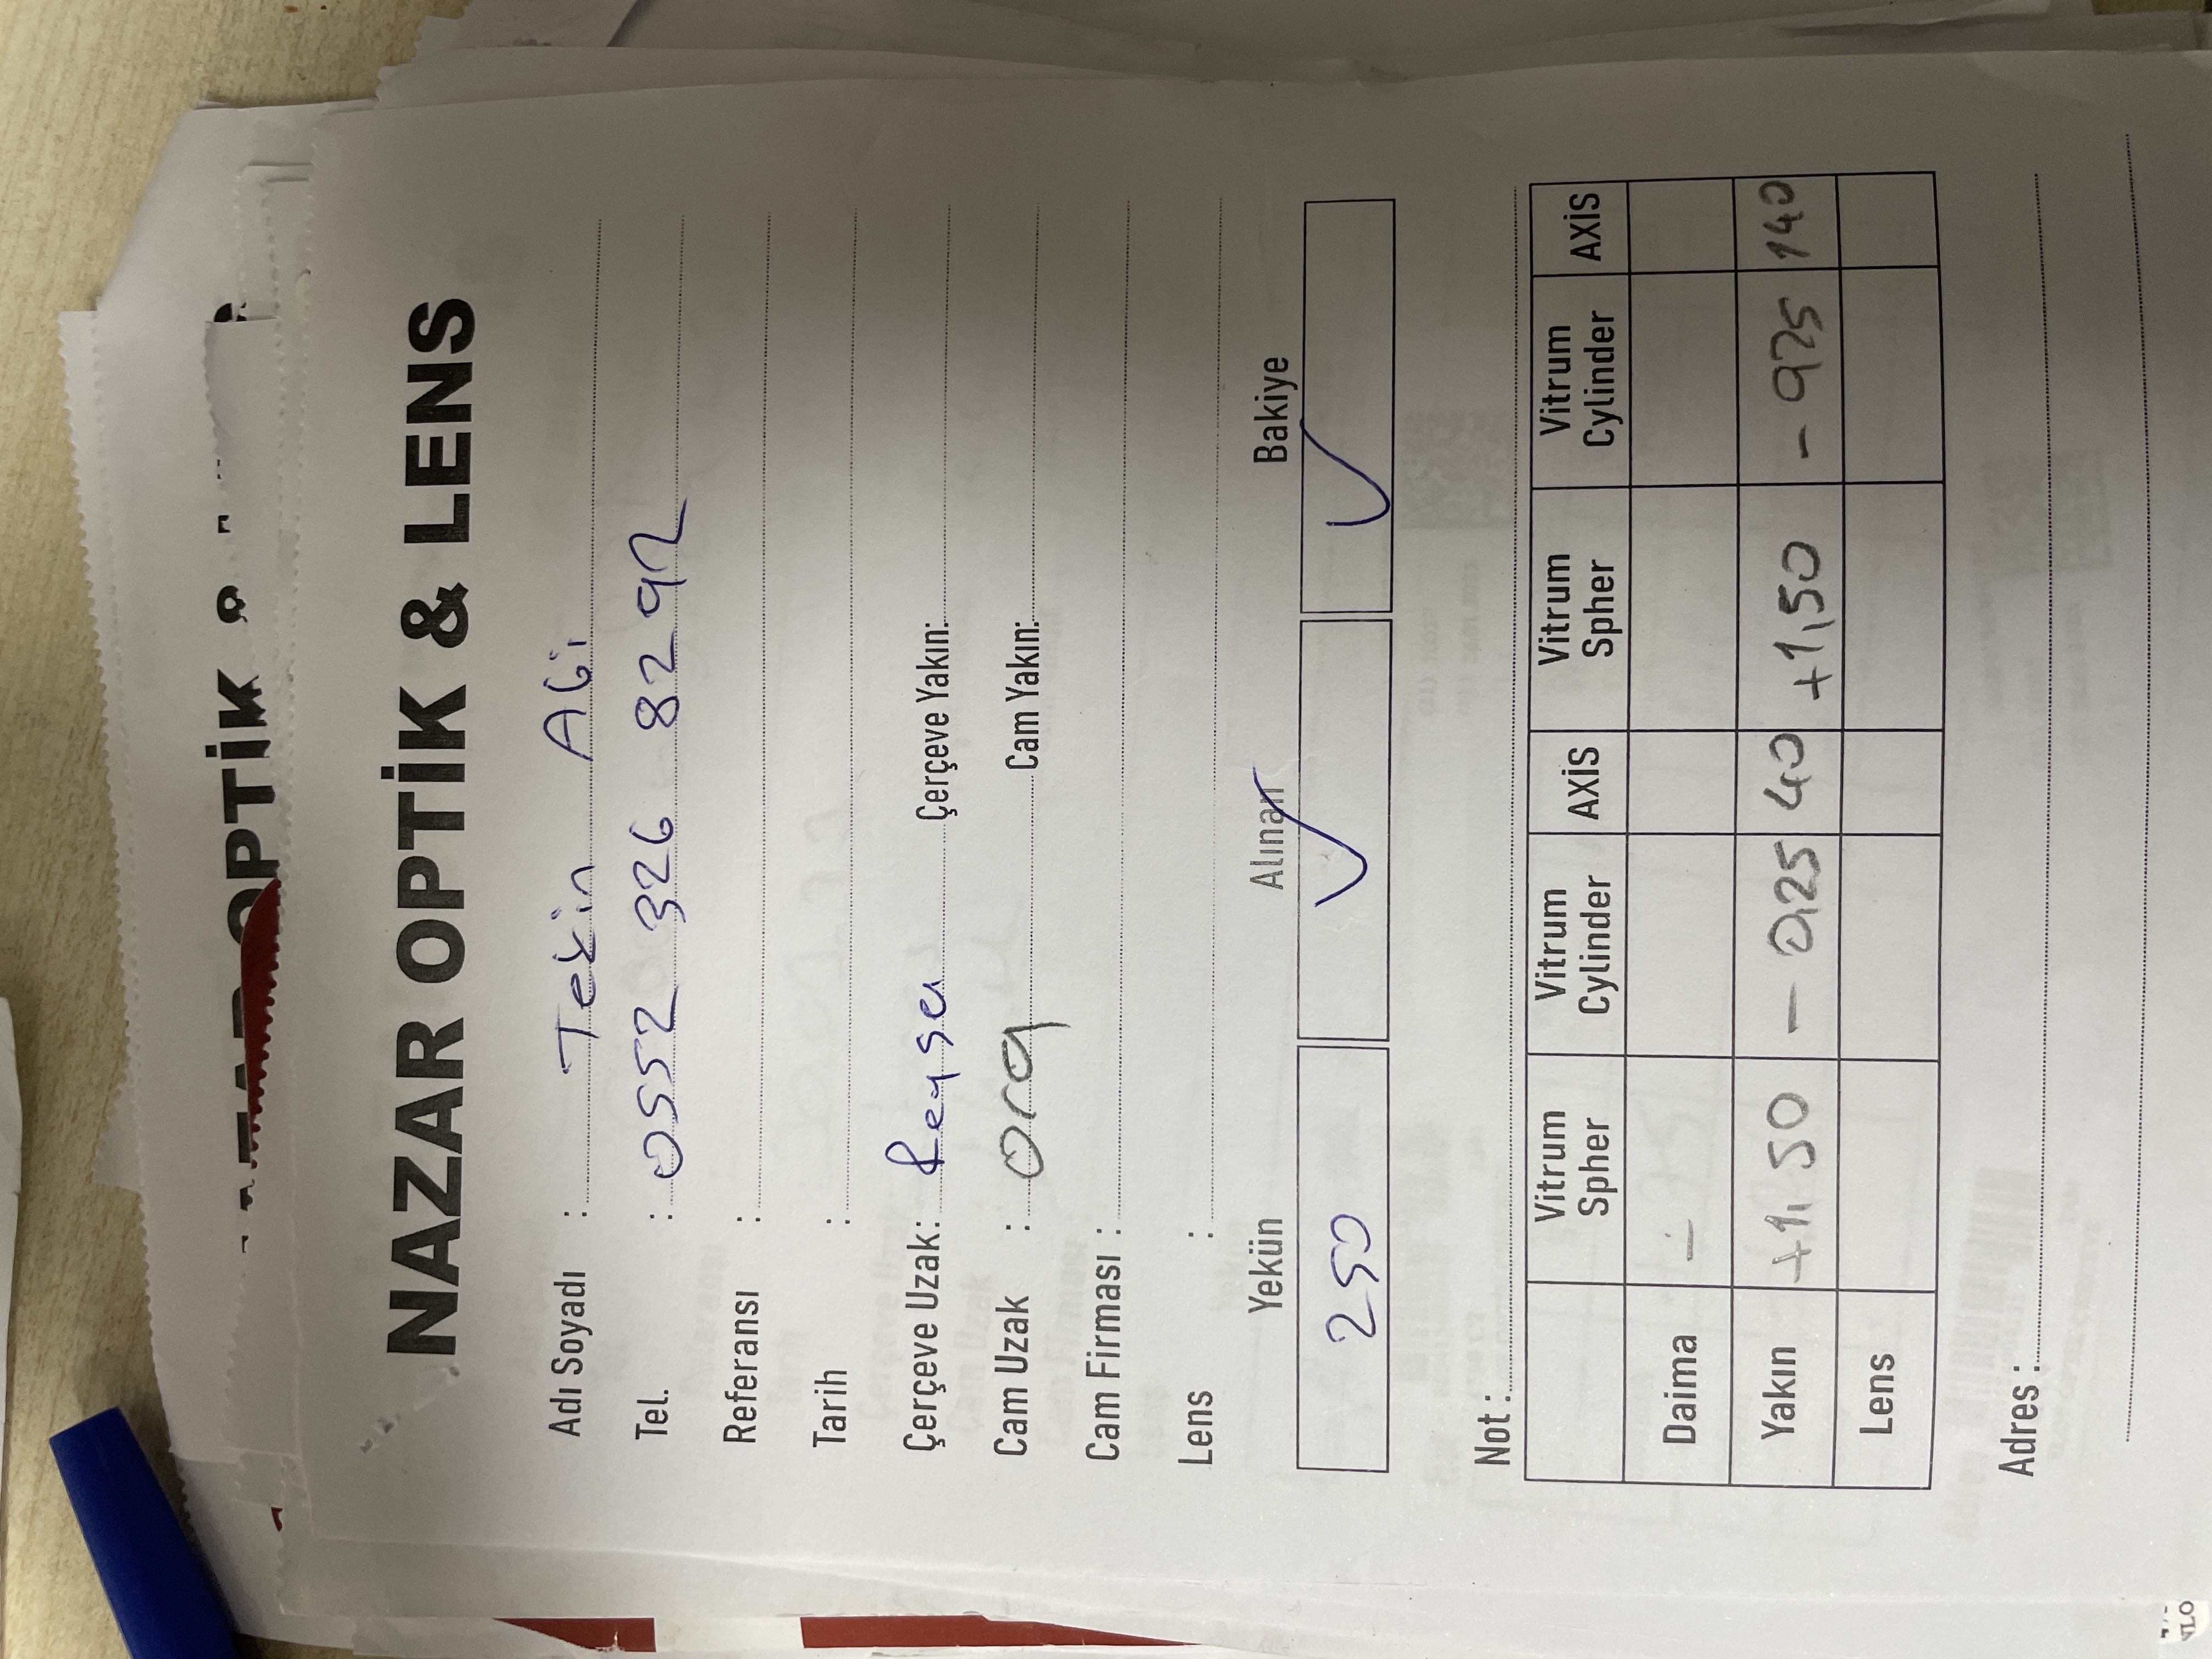 OPTİK &
NAZAR OPTİK & LENS
Adı Soyadı : Tekin Abi
Tel. : 0552 326 8292
Referansı :
Tarih :
Çerçeve Uzak: Reysa Çerçeve Yakın:
Cam Uzak : org Cam Yakın:
Cam Firması :
Lens :
Yekün Alınan Bakiye
250 ✓ ✓
Not :
Vitrum Spher Vitrum Cylinder AXİS Vitrum Spher Vitrum Cylinder AXİS
Daima -
Yakın +1,50 - 0,25 40 +1,50 - 0,25 140
Lens
Adres :